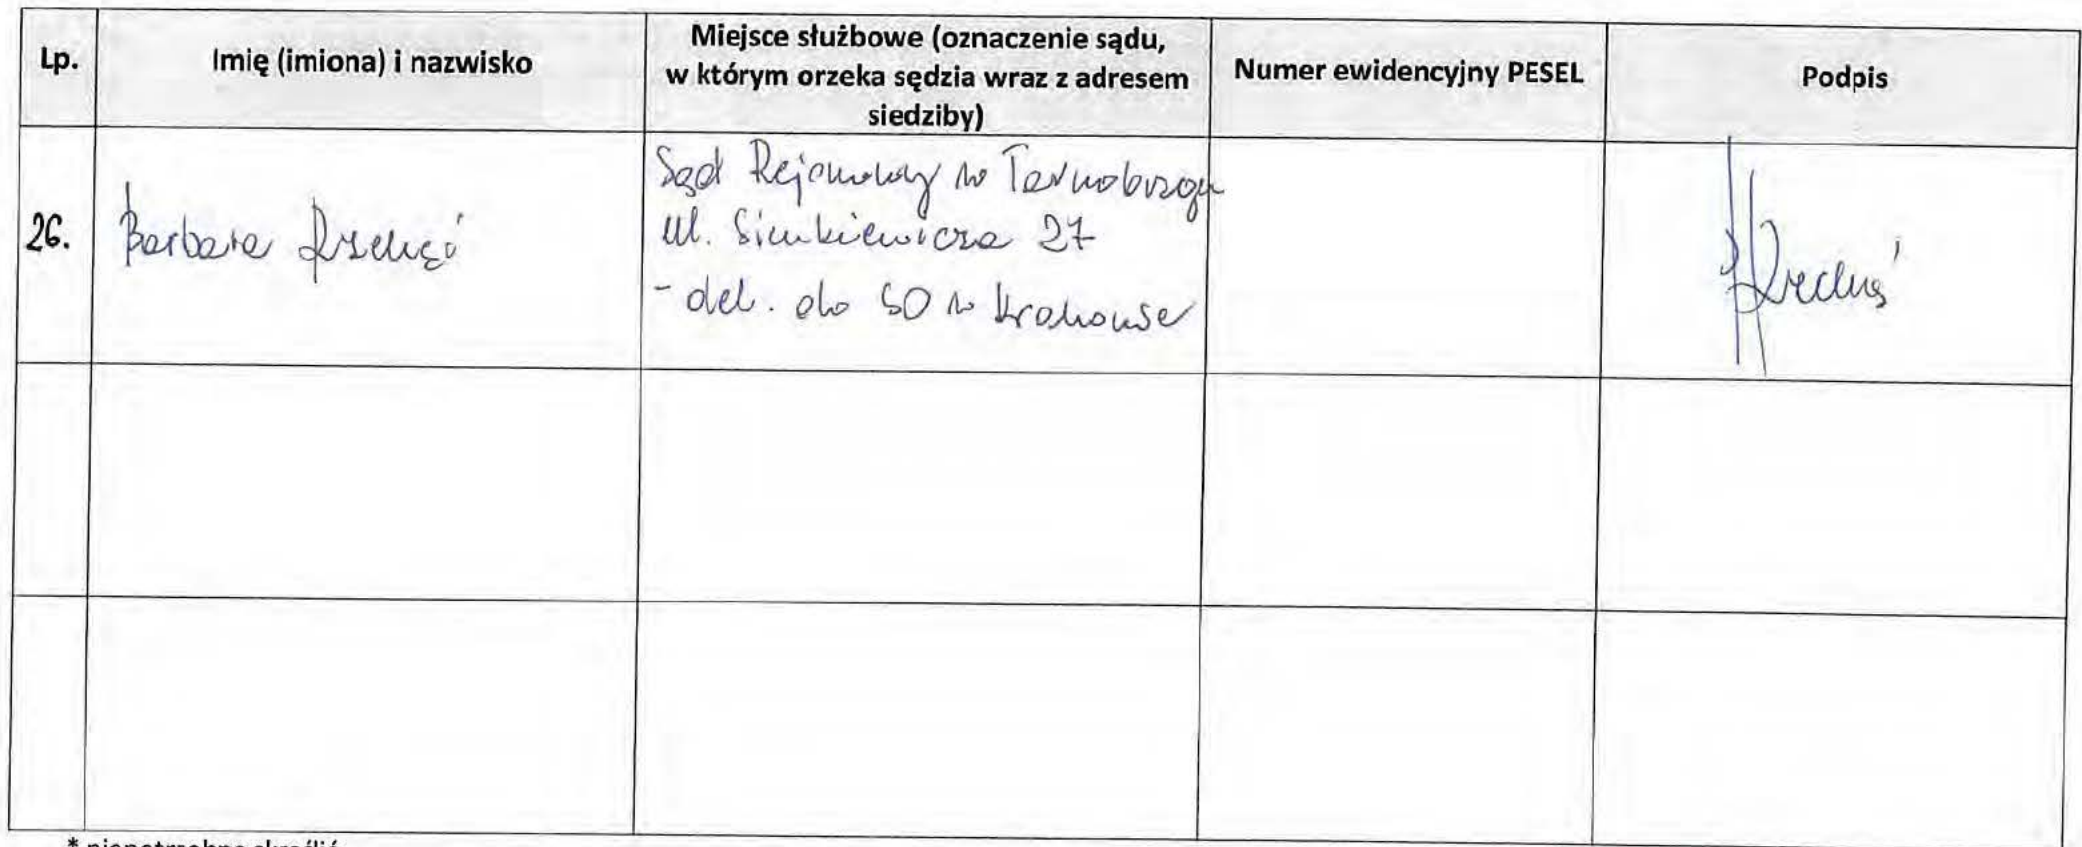 Lp.
Imię (imiona) i nazwisko
Miejsce służbowe (oznaczenie sądu,
w którym orzeka sędzia wraz z adresem
siedziby)
Numer ewidencyjny PESEL
Podpis
26.
Barbara
Sąd Rejonowy w Tarnobrzegu
ul. Sienkiewicza 27
- del. do SO w Krakowie
* niepotrzebne skreślić